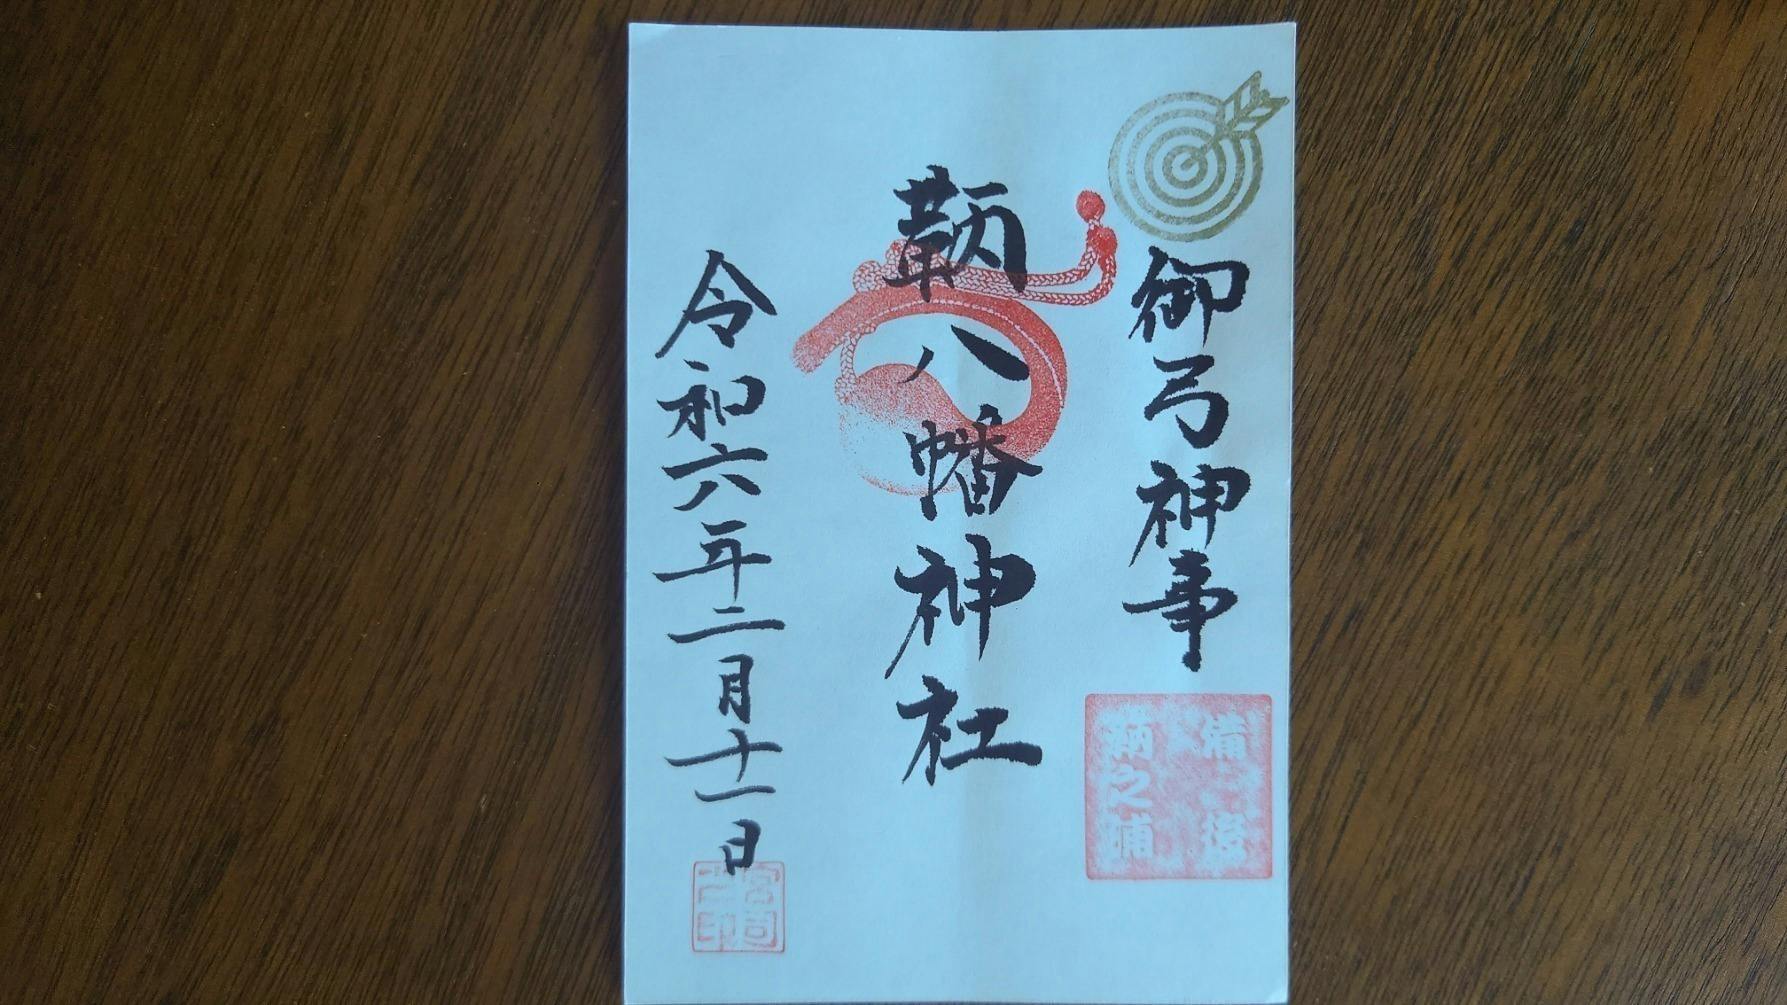 御弓神事
備後
鞆之浦
鞆八幡神社
令和六年二月十一日